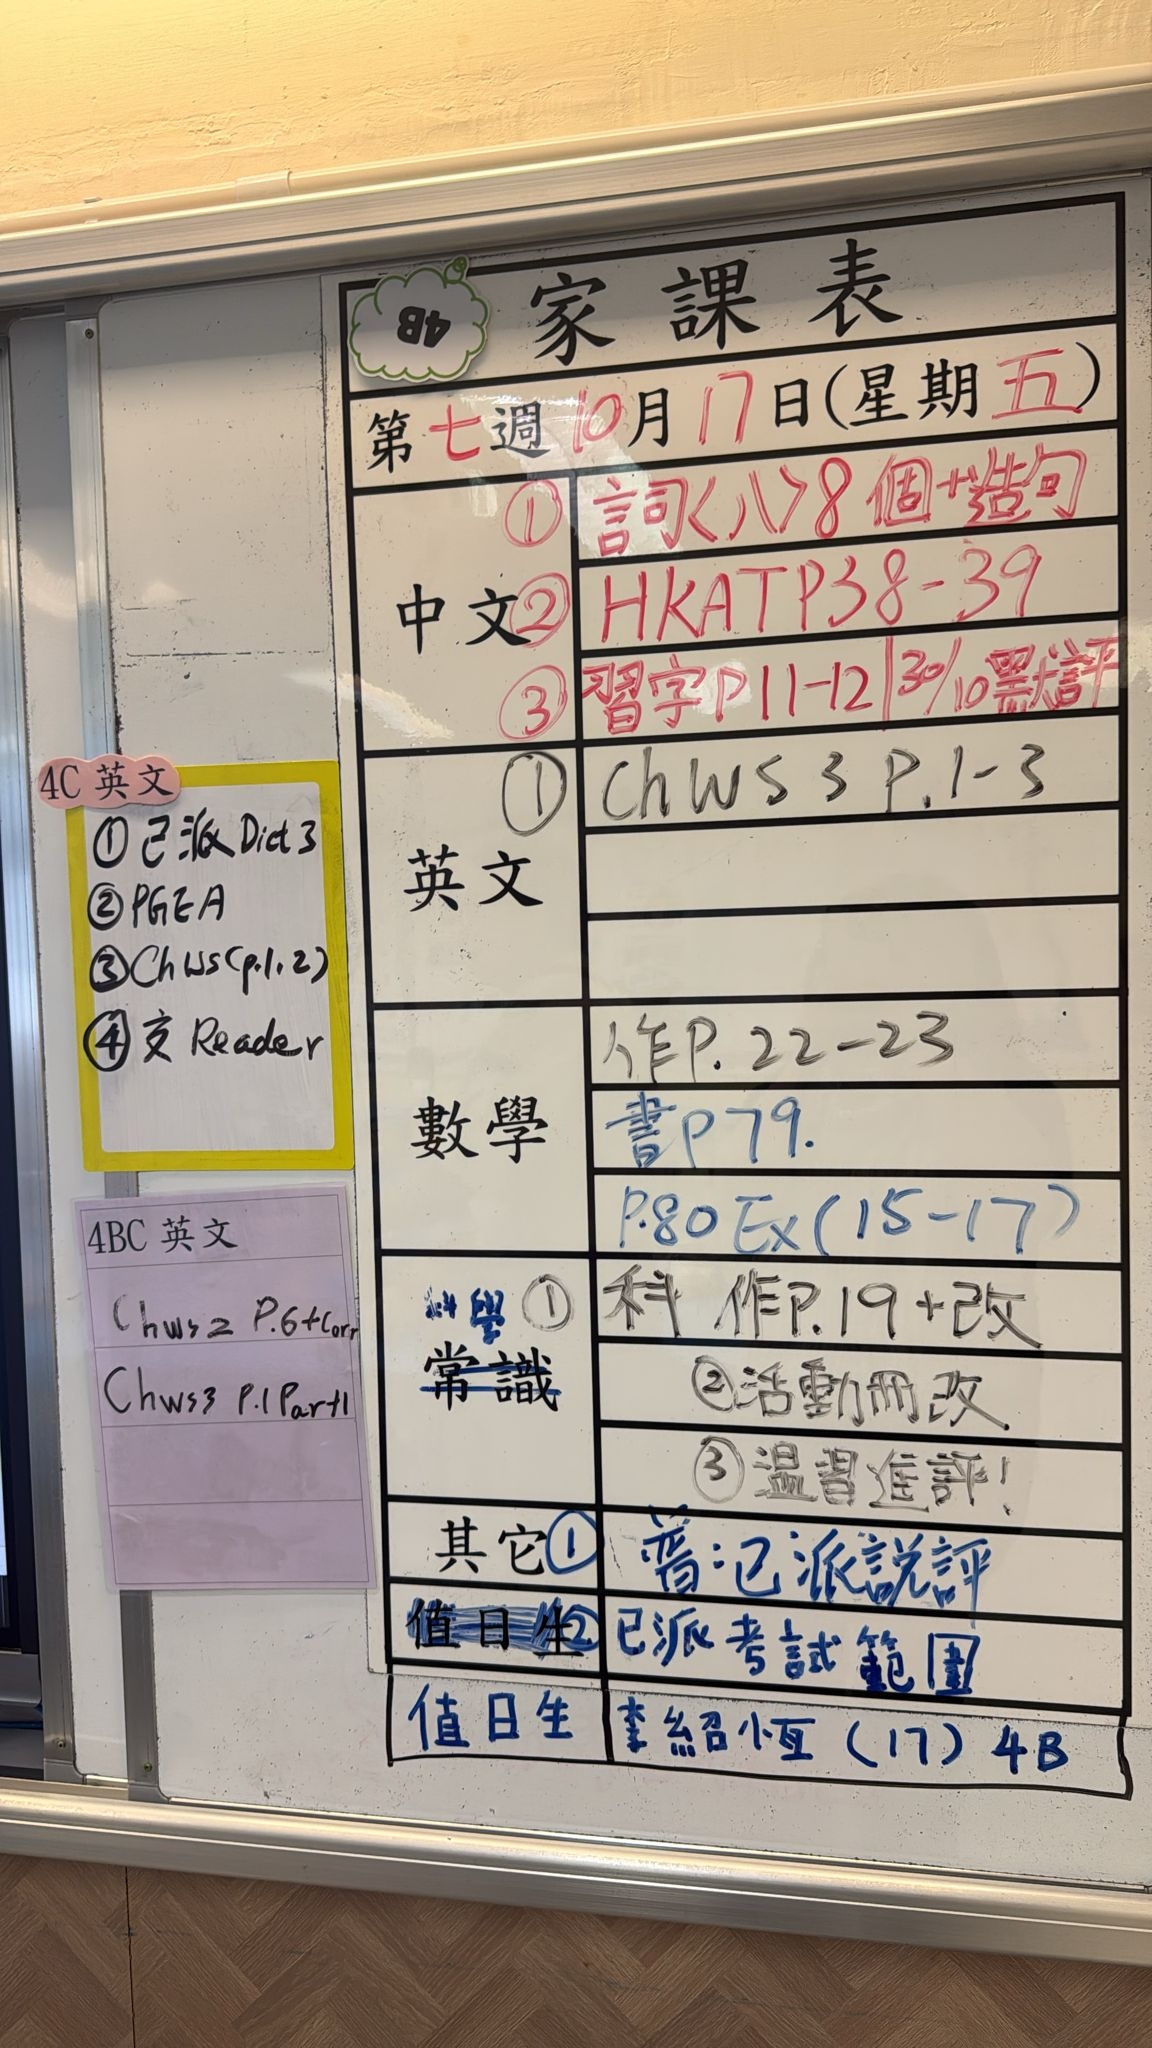 4B 家課表
第七週 10月17日(星期五)
中文
① 詞<八>8個+造句
② HKAT P38-39
③ 習字P11-12|30/10默評
英文
① ChWS 3 P.1-3
數學
作P.22-23
書P79.
P.80 Ex(15-17)
科學
常識
① 科 作P.19+改
②活動冊改
③温習進評!
其它① 普:已派說評
值日生② 已派考試範圍
值日生 李紹恆 (17) 4B
4C 英文
①已派Dict 3
②PGEA
③ChWS(p.1,2)
④交Reader
4BC 英文
Chws2 P.6+Corr
Chws3 P.1 Part1